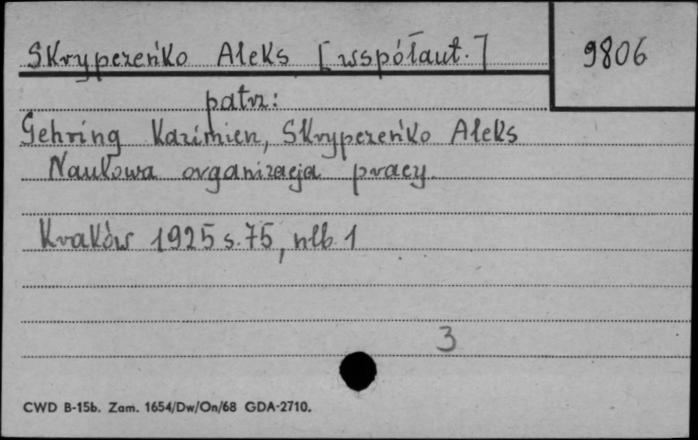 Skrypczeńko Aleks [współaut.]
9806
patrz:
Gehring Kazimierz, Skrypczeńko Aleks
Naukowa organizacja pracy.
Kraków 1925 s. 75, nlb. 1
3
CWD B-15b. Zam. 1654/Dw/On/68 GDA-2710.